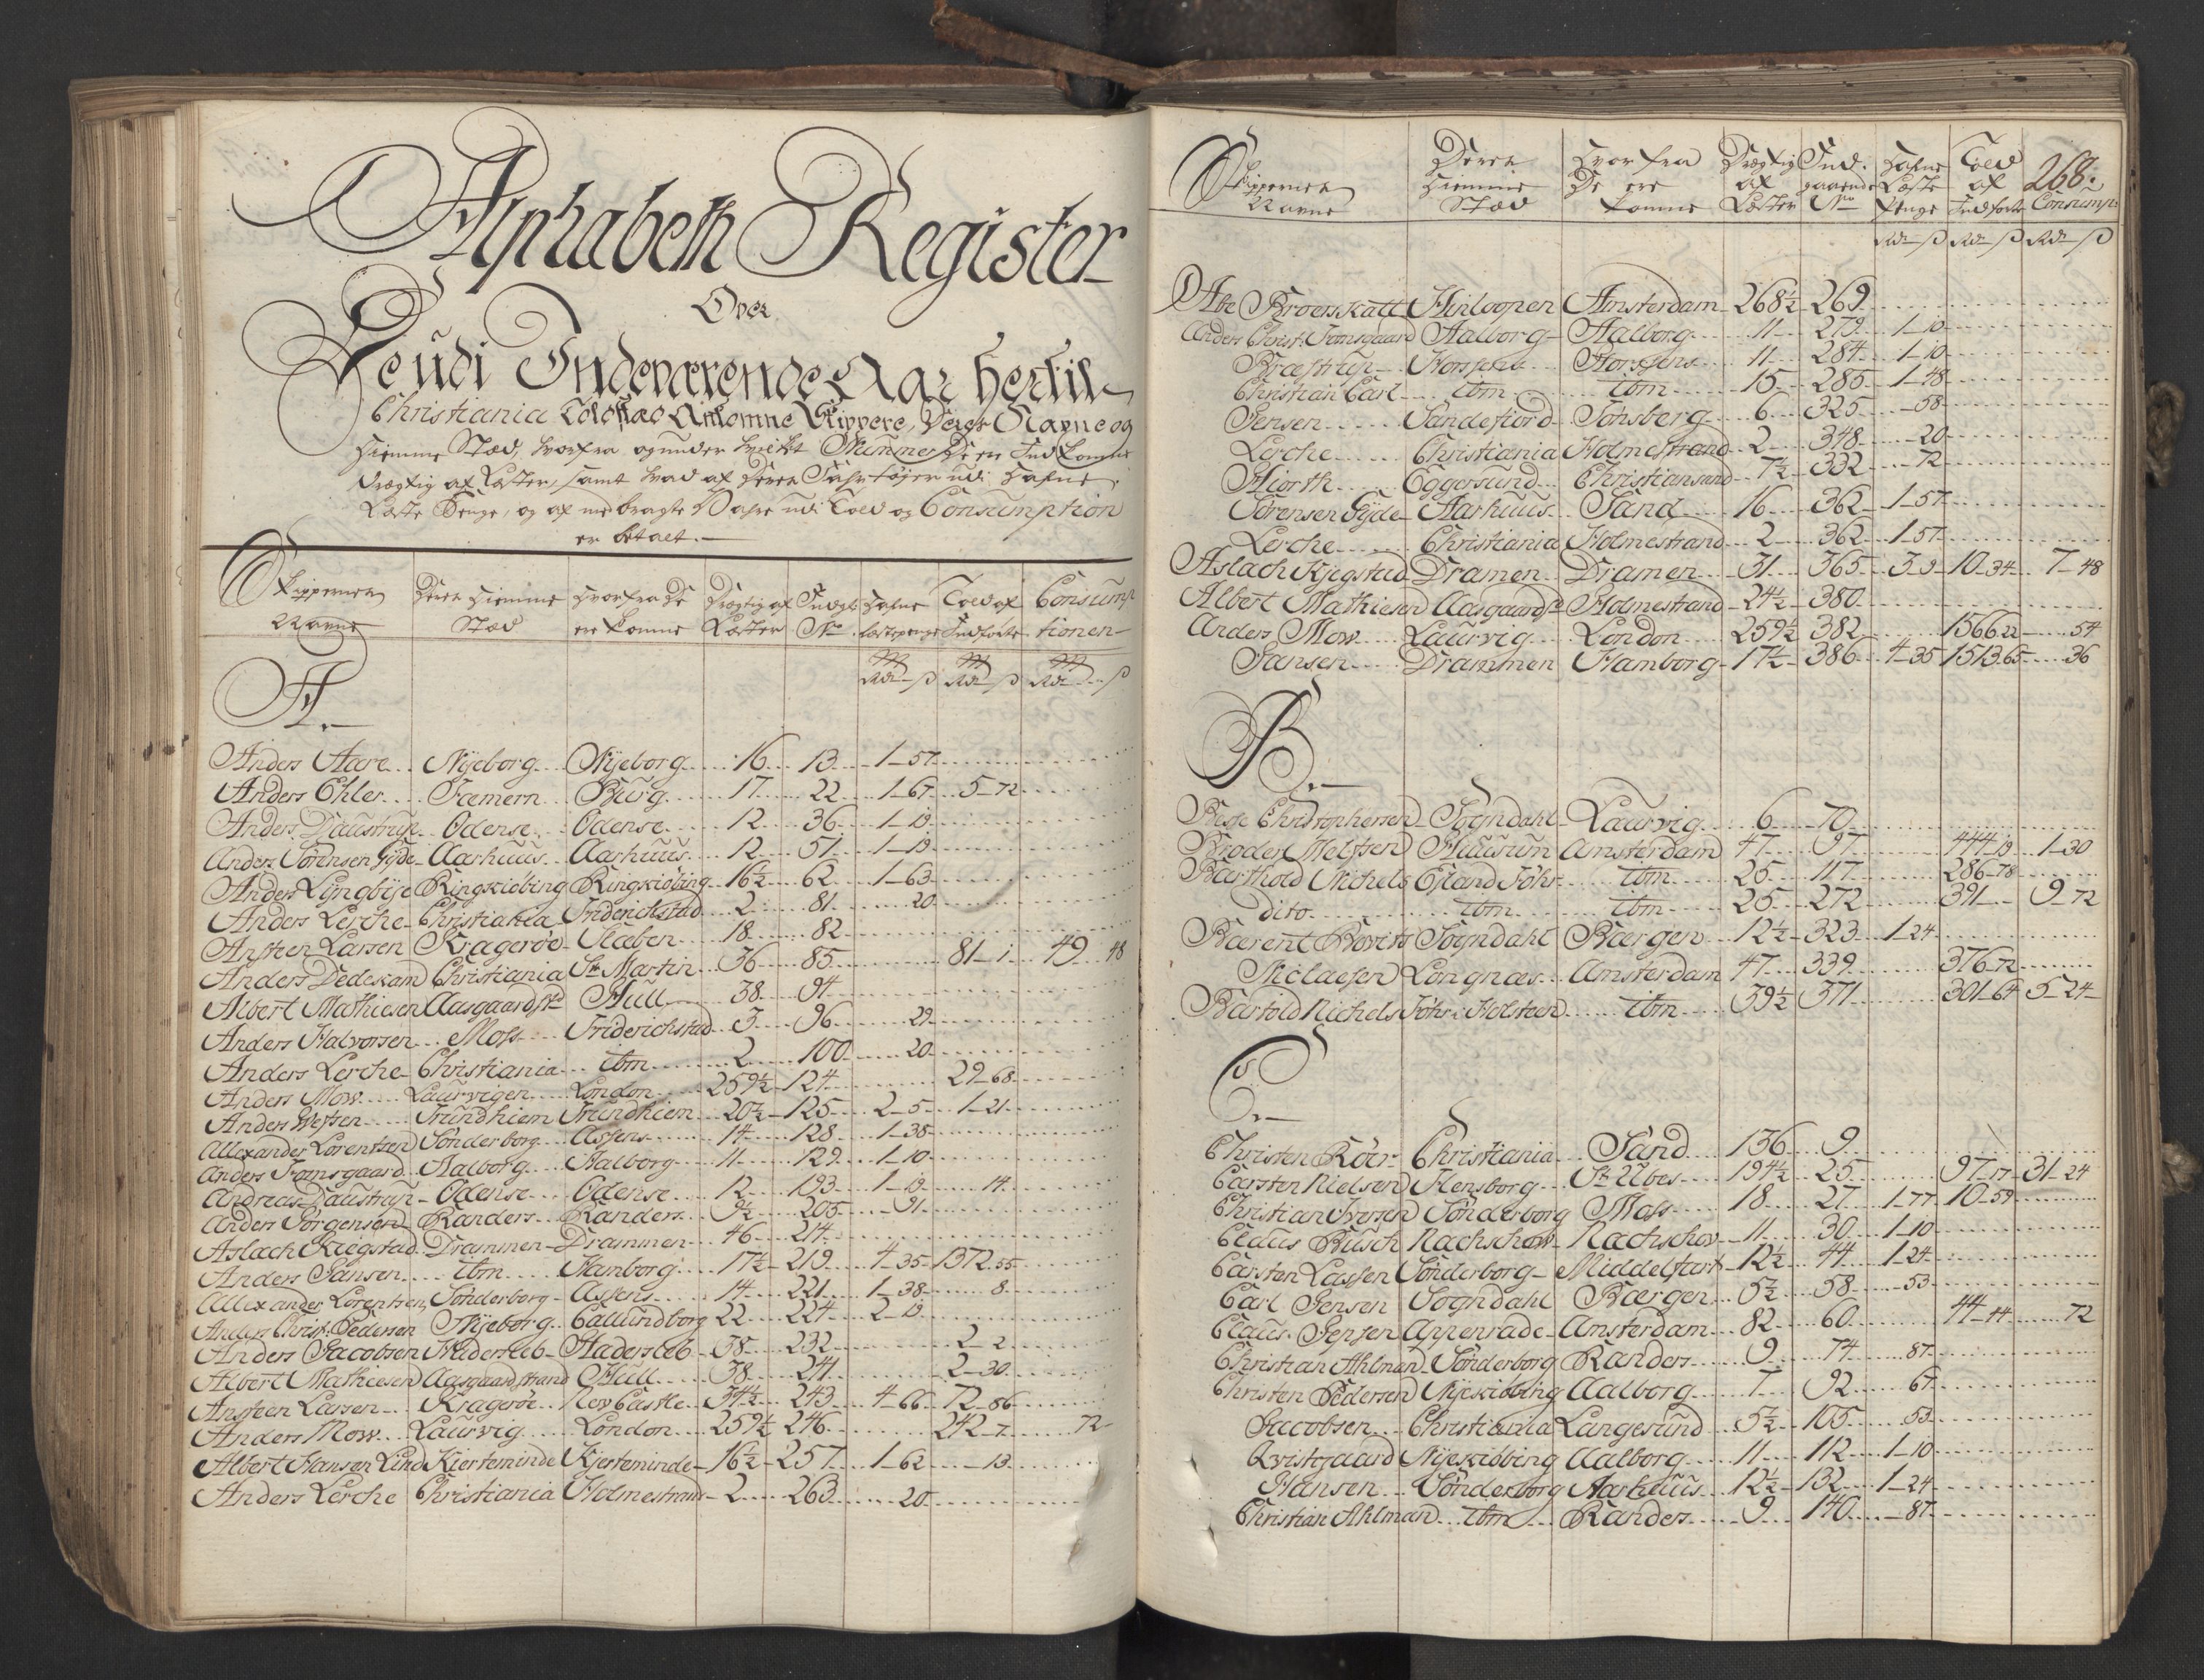 Alphabeth Register
Over
De udi Indeværende Aar hertil
Christiania Toldstæd Ankomne Skippere, Deres Navne og
Hiemme Stæd, hvorfra og under hvilket Nummer De ere Indkomne
drægtig af Læster, samt hvad af deres Fahrtøjer udi Hafne
Læste Penge, og af medbragte Vahre udi Told og Consumption
er betalt.
Skippernes Navne | Deres Hiemme Stæd | Hvorfra De ere komne | Drægtig af Læster | Indg: No | Hafne Læstepenge | Told af Indførte | Consumptionen
Rdr ß Rdr ß Rdr ß
A.
Anders Aare Nyeborg Nyeborg 16 13 1-57
Anders Ehler Femern Burg 17 22 1-67 5-72
Anders Daustrup Odense Odense 12 36 1-19
Anders Sørensen Fyde Aarhuus Aarhuus 12 51 1-19
Anders Lyngbye Ringkiøbing Ringkiøbing 16½ 62 1-63
Anders Lerche Christiania Friderichstad 2 81 20
Ansteen Larsen Kragerøe 18 82
Anders Dedekam Christiania St Martin 36 85 81-1 49 48
Albert Mathiesen Aasgaardstd Hull 38 94
Anders Halvorsen Moss Friderichstad 3 96 29
Anders Lerche Christiania ibm 2 100 20
Anders Mow Laurvigen London 259½ 124 29-68
Anders Wessen Trundhiem Trundhiem 20½ 125 2-5 1-21
Allexander Lorentzen Sønderborg Assens 14 128 1-38
Anders Tomsgaard Aalborg Aalborg 11 129 1-10
Andreas Daustrup Odense Odense 12 193 1-19 14
Anders Jørgensen Randers Randers 9½ 205 91
Aslach Kiegstad Drammen Drammen 46 214
Anders Jansen ibm Hamborg 17½ 219 4-35 1372-55
Allexander Lorentzen Sønderborg Assens 14 221 1-38 8
Anders Christ: Pedersen Nyeborg Callundborg 22 224 2-19
Anders Jacobsen Hadersleb Hadersleb 38 232 2-2
Albert Mathiesen Aasgaardstrand Hull 38 241 2-30
Ansteen Larsen Kragerøe New Castle 34½ 243 4-66 72-86
Anders Mow Laurvig London 259½ 246 242-7 72
Albert Hansen Lind Kierteminde Kjerteminde 16½ 257 1-62 13
Anders Lerche Christiania Holmestrand 2 263 20
268.
Skippernes Navne | Deres Hiemme Stæd | Hvorfra De ere komne | Drægtig af Læster | Ind gaaende No | Hafne Læste Penge | Told af Indførte | Consumpt
Rdr ß Rdr ß Rdr ß
Abe Broerskatt Hinloopen Amsterdam 268½ 269
Anders Christ: Tomsgaard Aalborg Aalborg 11 279 1-10
Bræstrup Horsens Horsens 11 284 1-10
Christian Carl ibm ibm 15 285 1-48
Jensen Sandefiord Tønsberg 6 325 58
Lerche Christiania Holmestrand 2 348 20
Hiorth Eggersund Christiansand 7½ 332 72
Sørensen Fyde Aarhuus Sand 16 362 1-57
Lerche Christiania Holmestrand 2 362 1-57
Aslach Kjegstad Dramen Dramen 31 365 3-9 10-34 7-48
Albert Mathiesen Aasgaardst Holmestrand 24½ 380
Anders Mow Laurvig London 259½ 382 1566-22 54
Jansen Drammen Hamborg 17½ 386 4-35 1513-65 36
B.
Christophersen Sogndahl Laurvig 6 70
Broder Melssen Huusum Amsterdam 47 97 444-19 1-30
Barthold Michels Esland Föhr ibm 25 117 286-78
dito ibm ibm 25 272 391 9-72
Barent Sogndahl Bærgen 12½ 323 1-24
Niclaesen Longnæs Amsterdam 47 339 376-72
Bartold Nichels Föhr i Holsteen ibm 39½ 371 301-64 5-24
C.
Christen Röer Christiania Sand 136 9
Carsten Nielsen Flensborg St Ubes 194½ 25 97-17 31-24
Christian Iversen Sønderborg Moss 18 27 1-77 10-59
Busch Nachschow Nachschov 11 30 1-10
Carsten Lassen Sønderborg Middelfart 12½ 44 1-24
Carl Jensen Sogndahl Bærgen 5½ 58 53
Claus Jensen Appenrade Amsterdam 82 60 44-44 72
Christian Ahlman Sønderborg Randers 9 74 87
Christen Pedersen Nyekiøbing Aalborg 7 92 67
Jacobsen Christiania Langesund 5½ 105 53
Qvistgaard Nyekiøbing Aalborg 11 112 1-10
Hansen Sønderborg Aarhuus 12½ 132 1-24
Christian Ahlman ibm Randers 9 140 87